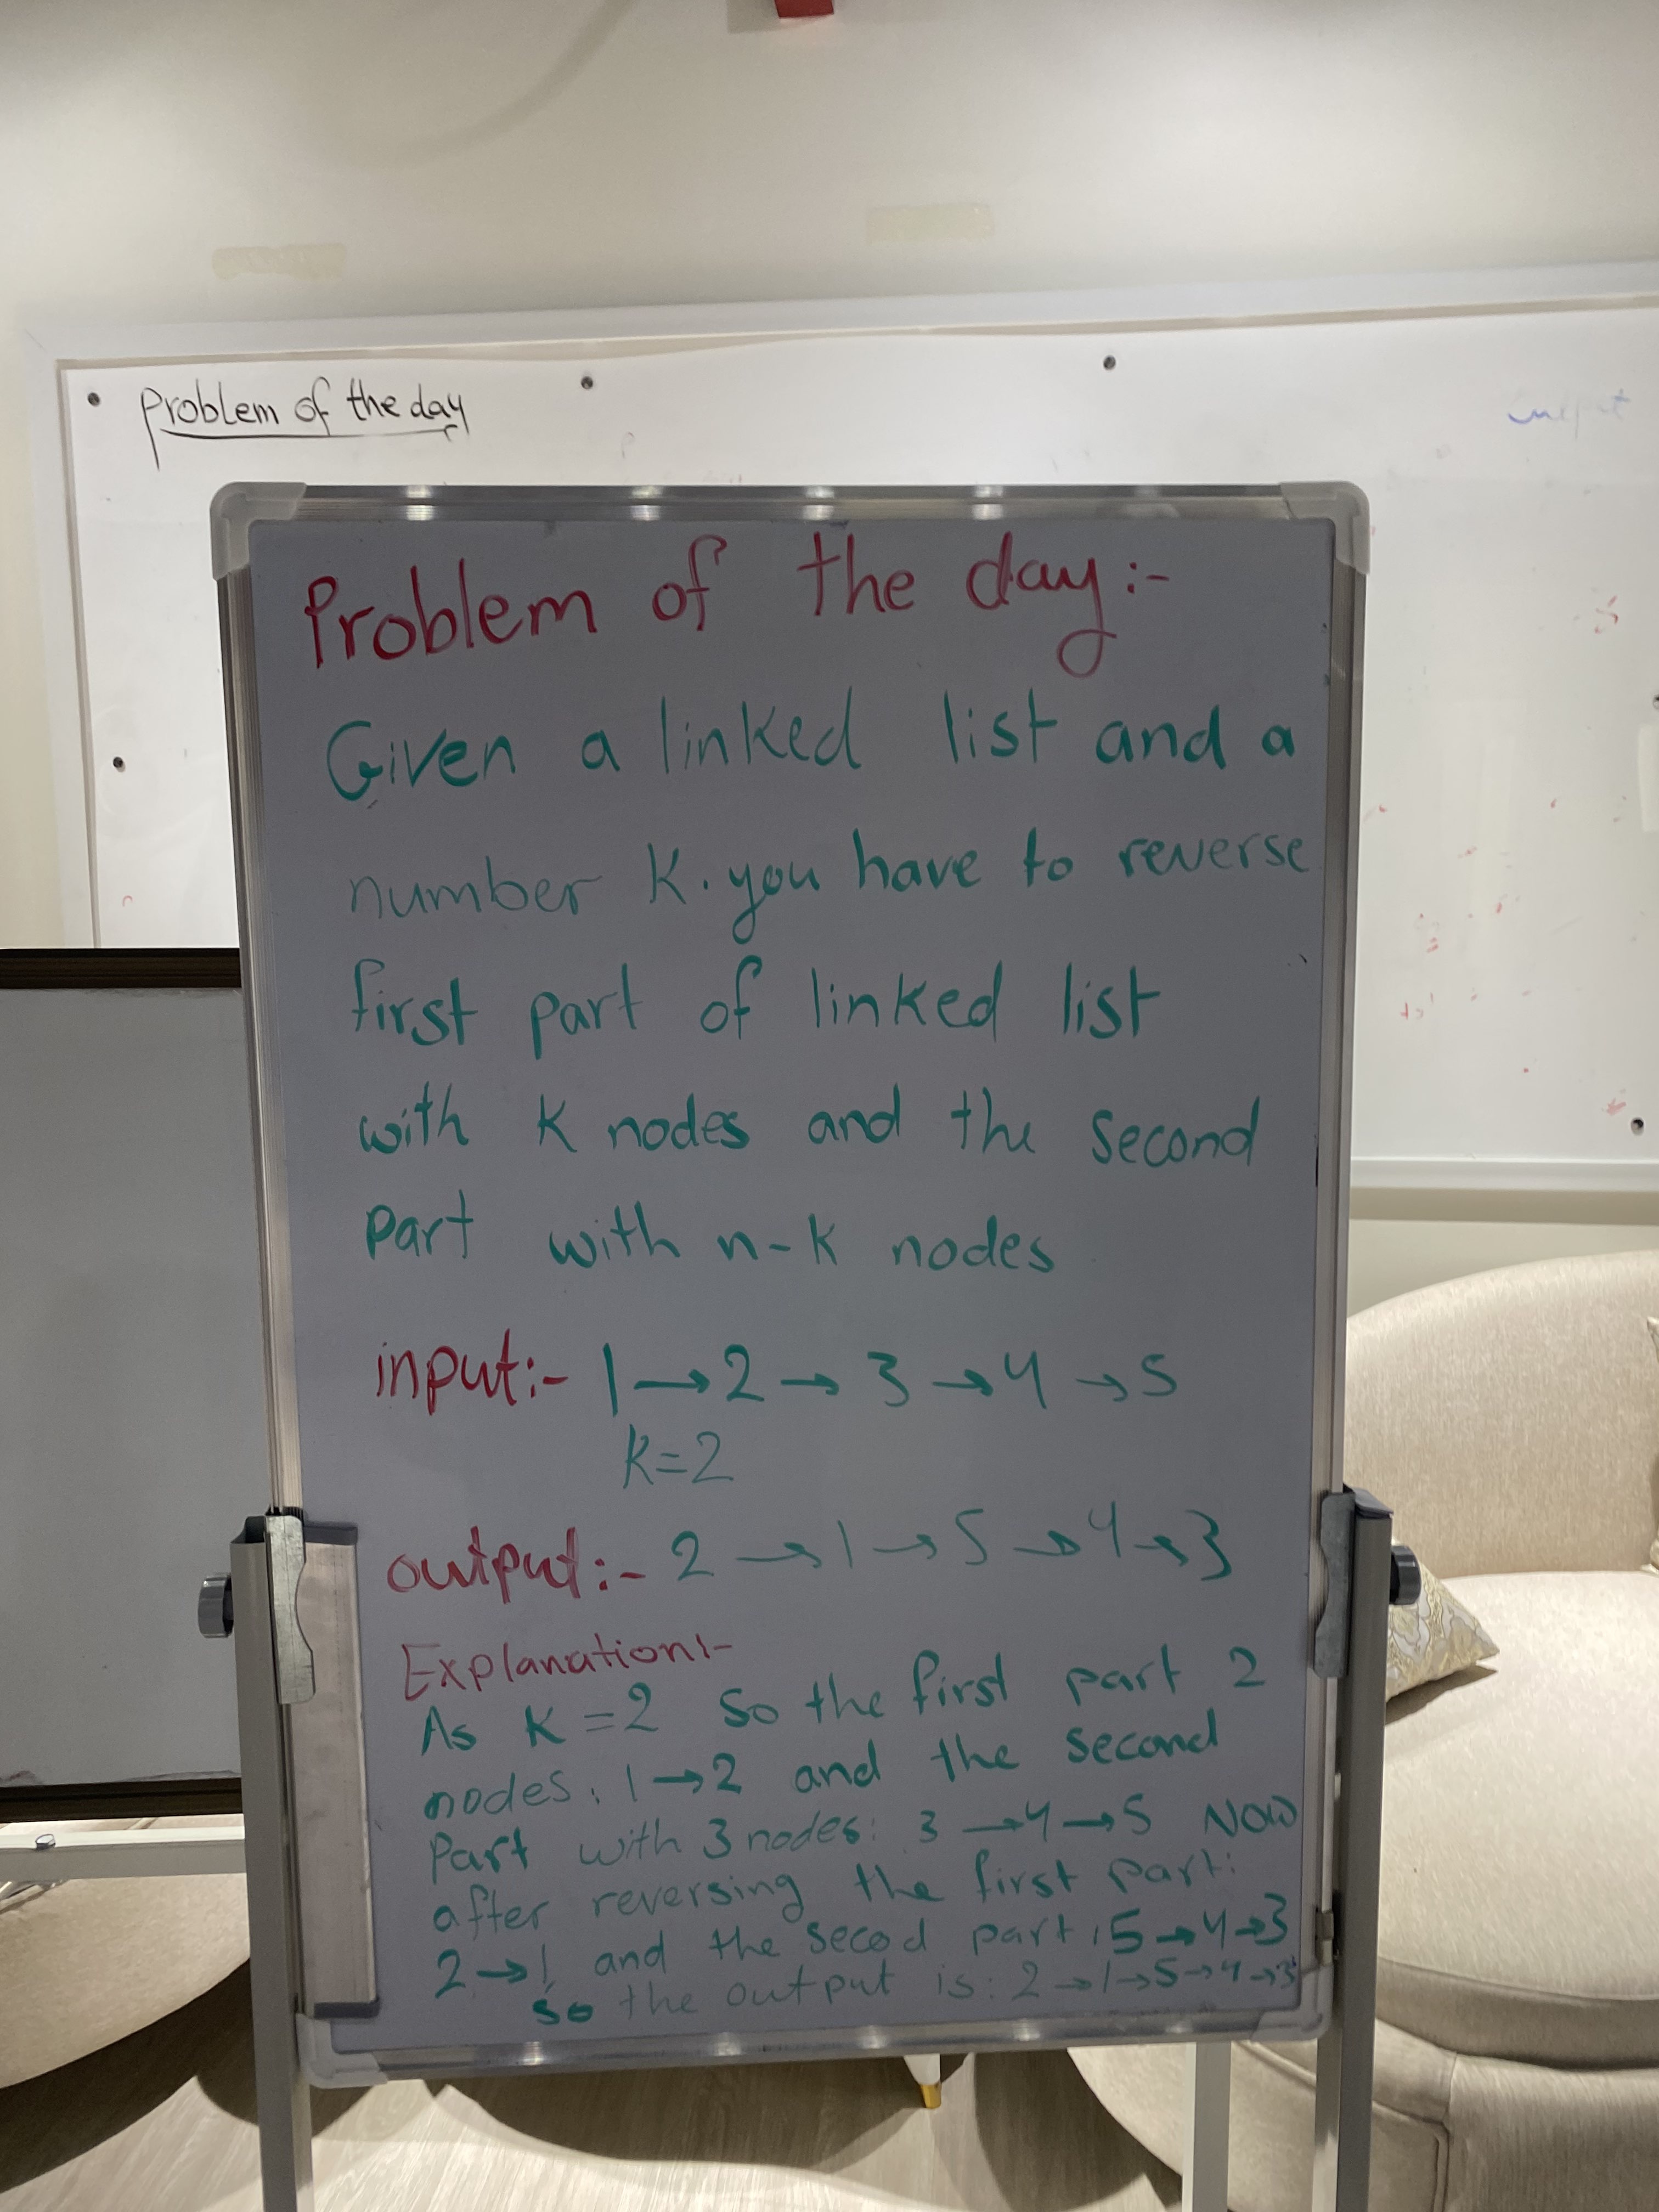 Problem of the day
Problem of the day:-
Given a linked list and a
number K. you have to reverse
first part of linked list
with K nodes and the second
part with n-k nodes
input:- 1→2→3→4→5
K=2
output:- 2→1→5→4→3
Explanation:-
As K=2 so the first part 2
nodes: 1→2 and the second
part with 3 nodes: 3→4→5 Now
after reversing the first part:
2→1, and the secod part: 5→4→3
so the output is: 2→1→5→4→3